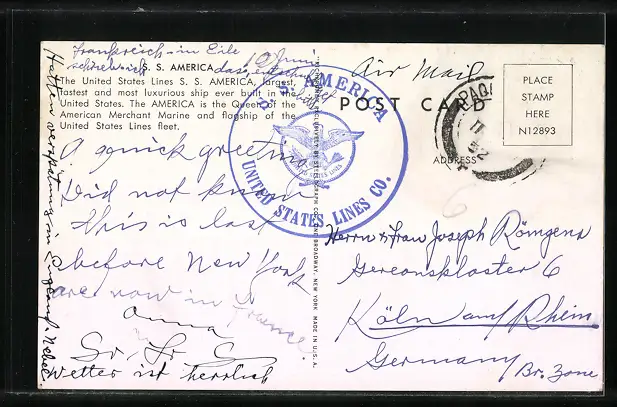 Frankreich in Eile
schrieb ich das
S. S. AMERICA
The United States Lines S. S. AMERICA, largest,
fastest and most luxurious ship ever built in the
United States. The AMERICA is the Queen of the
American Merchant Marine and flagship of the
United States Lines fleet.
A quick greeting
Did not know
this is last
before New York
are now in France
Anna
Sr. Fr.
Wetter ist herrlich
Hatten verspätung in Nebel
S. S. AMERICA
UNITED STATES LINES CO.
Air Mail
POST CARD
ADDRESS
PLACE
STAMP
HERE
N12893
PAQ
Herrn & Frau Joseph Römgens
Gereonskloster 6
Köln am Rhein
Germany
Br. Zone
BROADWAY, NEW YORK MADE IN U.S.A.